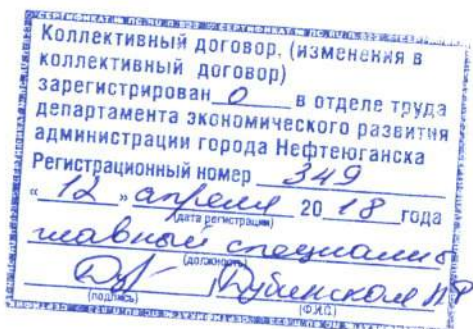 Коллективный договор, (изменения в
коллективный договор)
зарегистрирован о в отделе труда
департамента экономического развития
администрации города Нефтеюганска
Регистрационный номер 349
« 12 » апреля 20 18 года
(дата регистрации)
главный специалис
(должность)
(подпись) (Ф.И.О.)